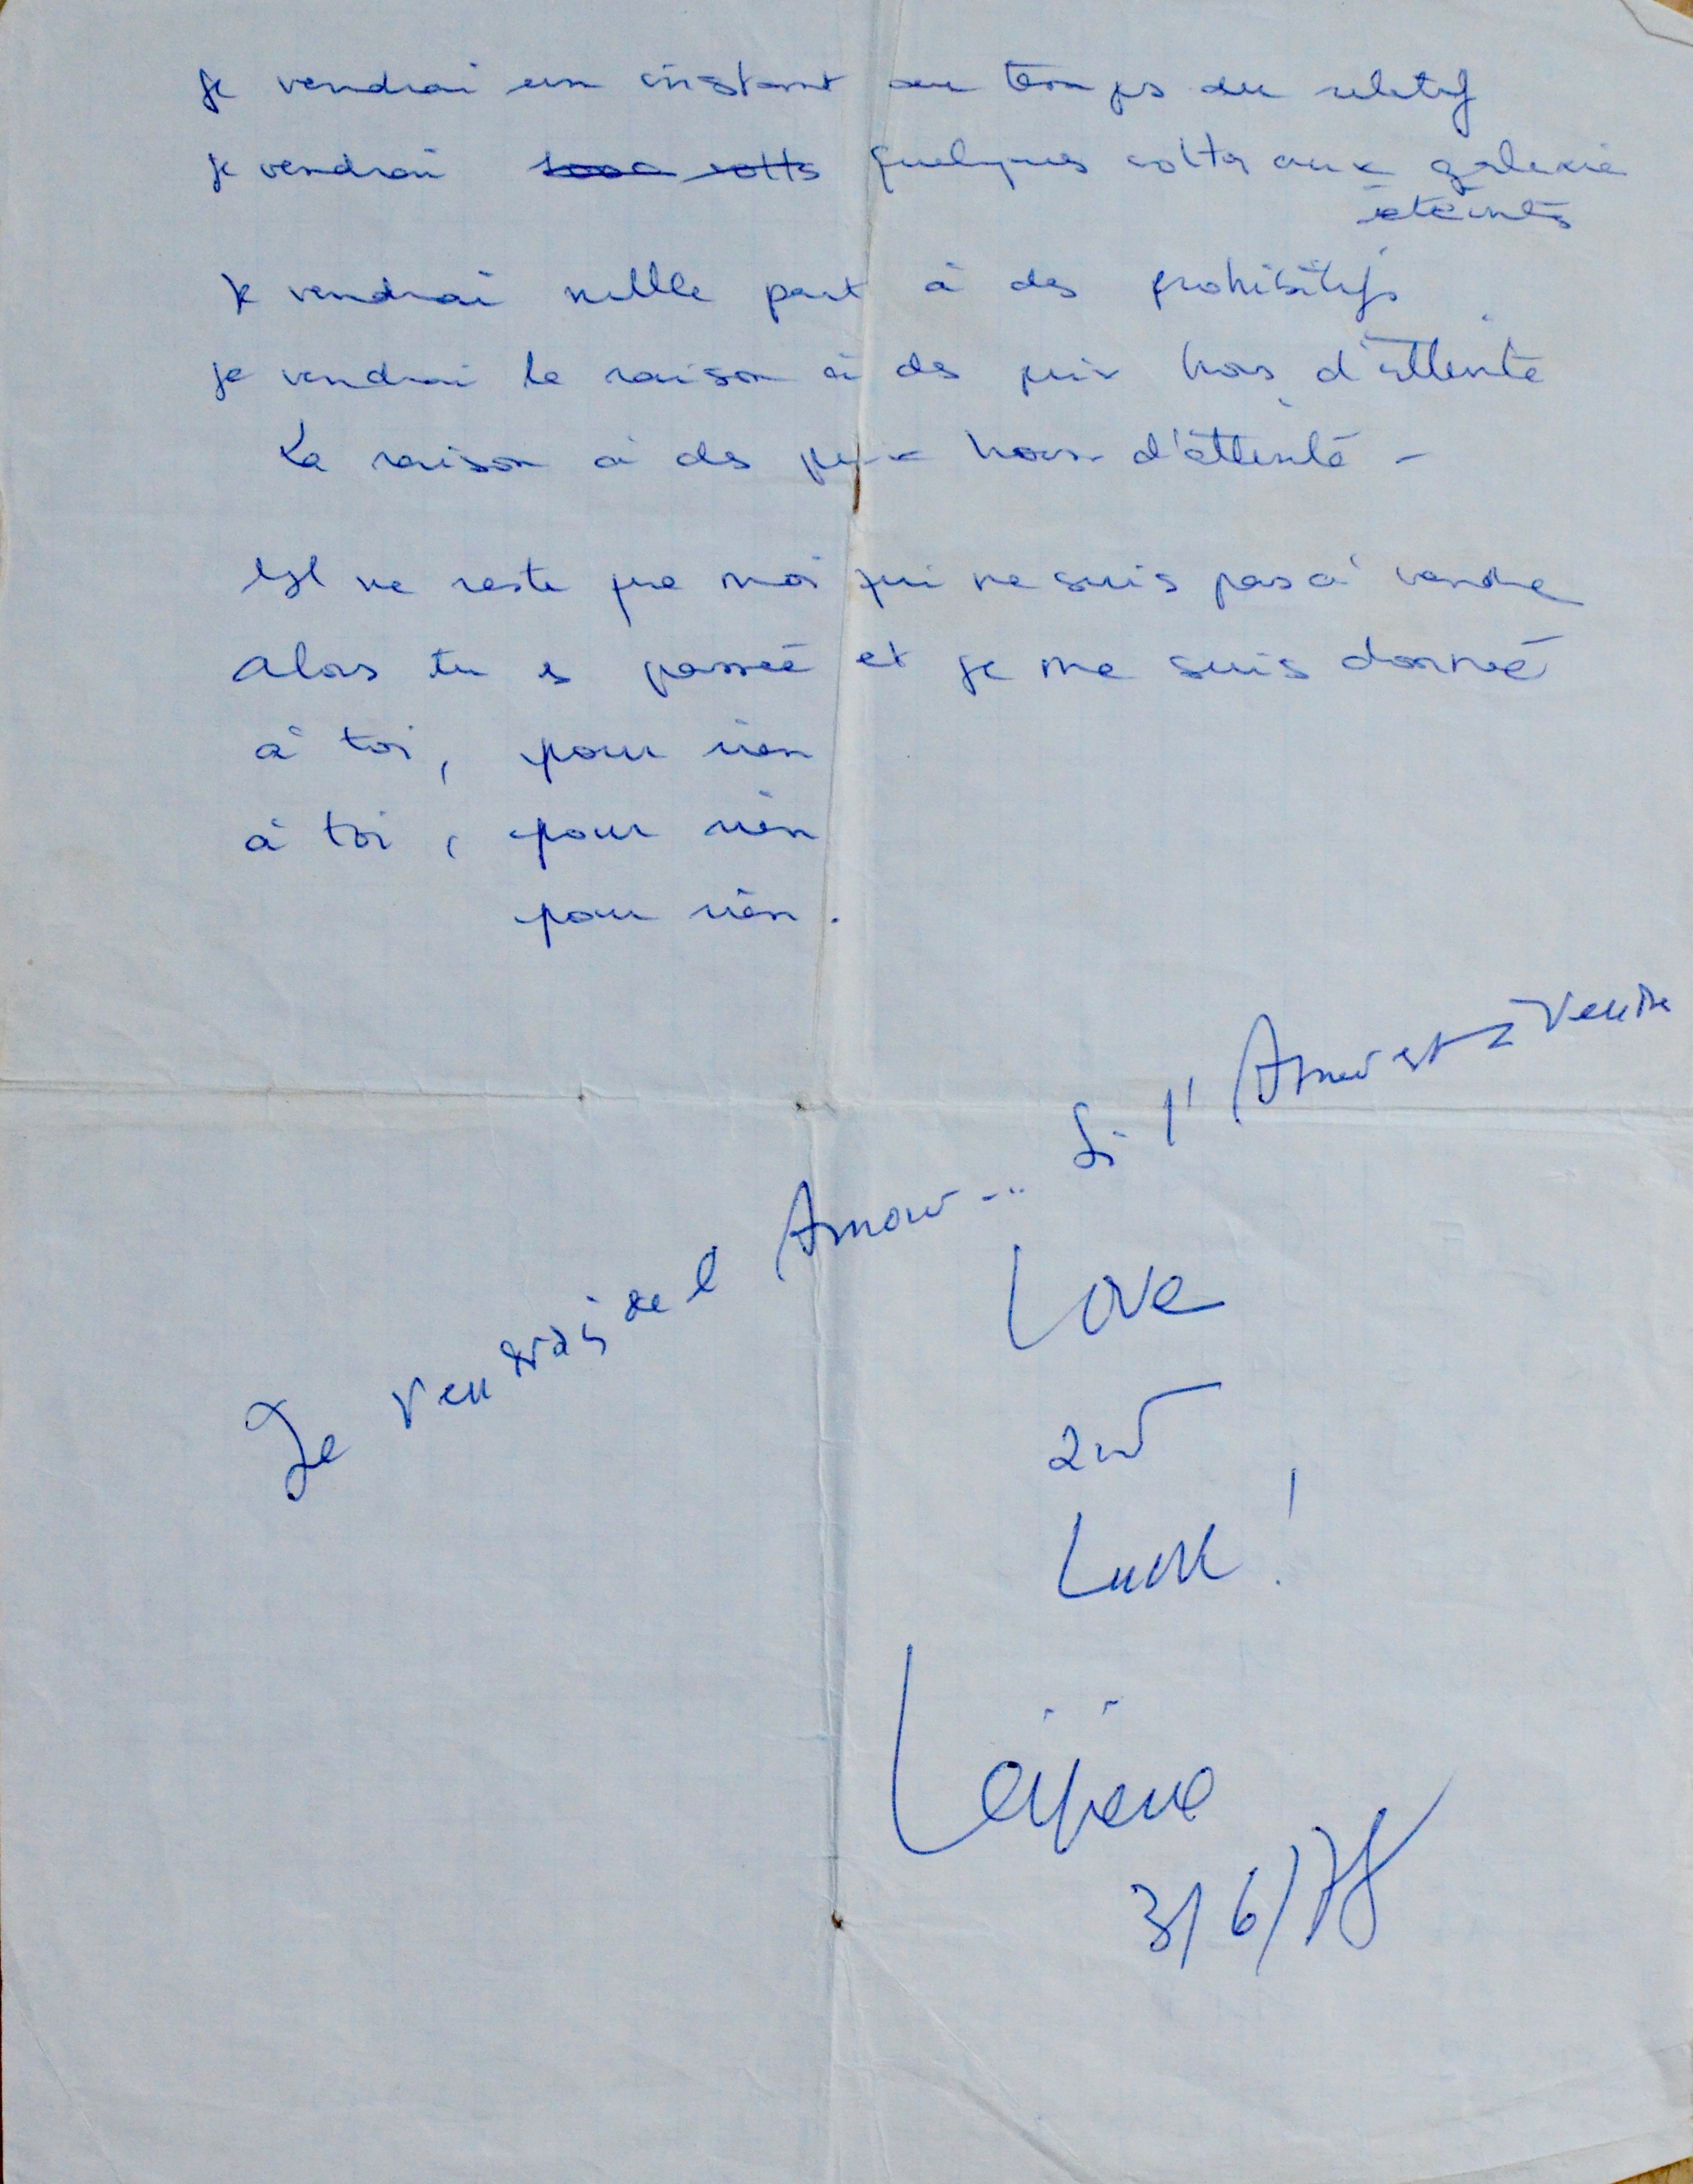 je vendrai un instant au temps du relatif
je vendrai 1000 volts quelques volts aux galaxie
éteintes
je vendrai nullle part à des prohibitifs
je vendrai la raison à des prix hors d'atteinte
La raison à des prix hors d'atteinte -
Il ne reste que moi qui ne suis pas à vendre
Alors tu es passée et je me suis donné
à toi, pour rien
à toi, pour rien
pour rien.
Je vendrais de l'Amour... Si l'Amour est à Vendre
Love
and
Luck!
3/6/78